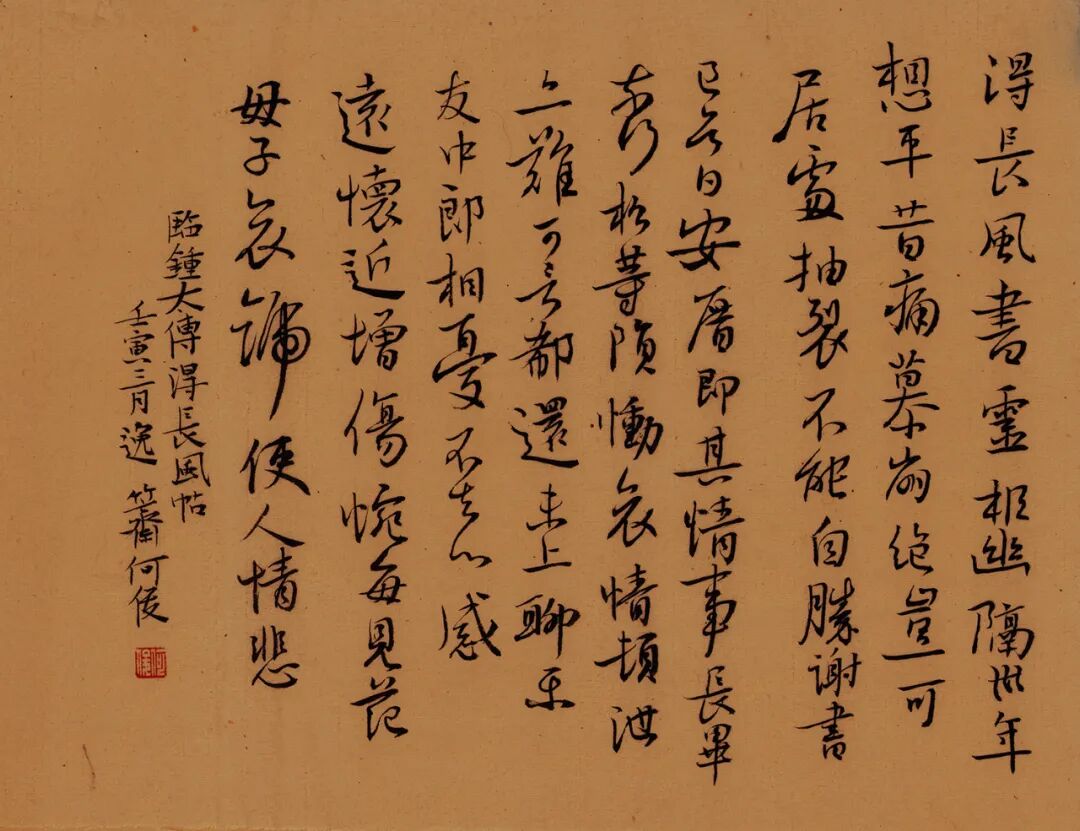 得長風書靈柩幽隔卅年
想平昔痛慕崩絕豈可
居處抽裂不能自勝謝書
已云日安厝即其情事長畢
松等隕慟哀情頓泄
亦難可言郗還未上聊示
友中郎相憂不去心感
遠懷近增傷惋每見范
母子哀號使人情悲
臨鍾太傅得長風帖
壬寅三月逸竺齋何俊